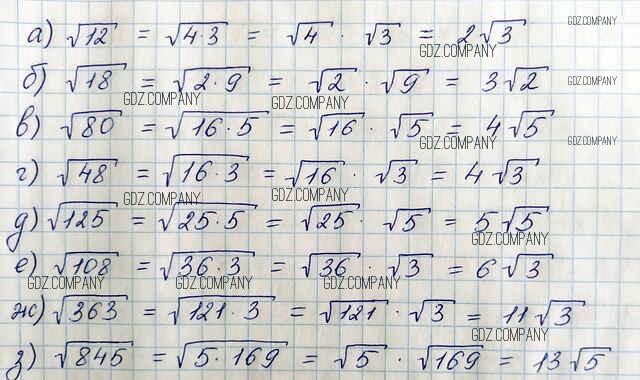 а) √12 = √4·3 = √4 · √3 = 2√3 GDZ.COMPANY
GDZ.COMPANY
б) √18 = √2·9 = √2 · √9 = 3√2 GDZ.COMPANY
GDZ.COMPANY GDZ.COMPANY
в) √80 = √16·5 = √16 · √5 = 4√5
GDZ.COMPANY GDZ.COMPANY
г) √48 = √16·3 = √16 · √3 = 4√3
GDZ.COMPANY GDZ.COMPANY
д) √125 = √25·5 = √25 · √5 = 5√5
GDZ.COMPANY
е) √108 = √36·3 = √36 · √3 = 6√3
GDZ.COMPANY GDZ.COMPANY GDZ.COMPANY
ж) √363 = √121·3 = √121 · √3 = 11√3
GDZ.COMPANY
з) √845 = √5·169 = √5 · √169 = 13√5